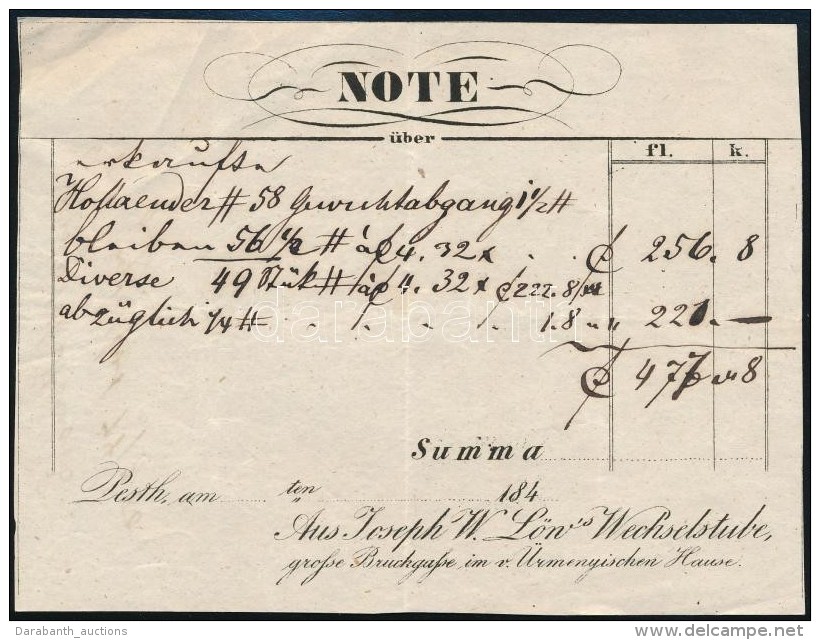 NOTE
über
fl. k.
erkaufte
Hollaender # 58 Gewichtabgang 1 1/2 #
bleiben 56 1/2 # à f 4. 32 x . . f 256. 8
Diverse 49 Stük # à f 4. 32 x f 222. 8
abzüglich 1/4 # . . . . 1. 8 " " 221. —
f 477 " 8
Summa
Pesth, am ten 184
Aus Joseph W. Löw's Wechselstube,
grosse Bruckgaße im v. Ürmenyischen Hause.
darabanth
Darabanth_auctions
delcampe.net